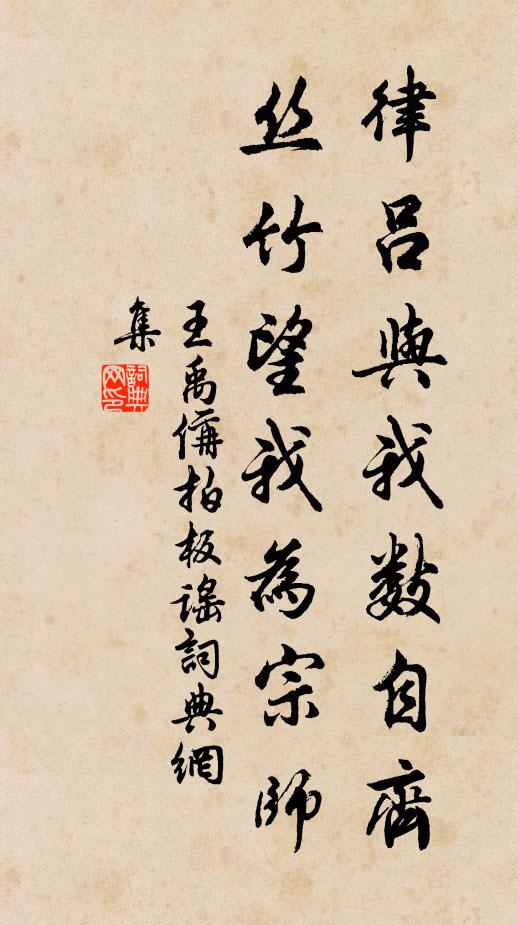 律呂與我數自齊
丝竹望我為宗師
王禹偁拍板謠詞典網
集
詞典
网印